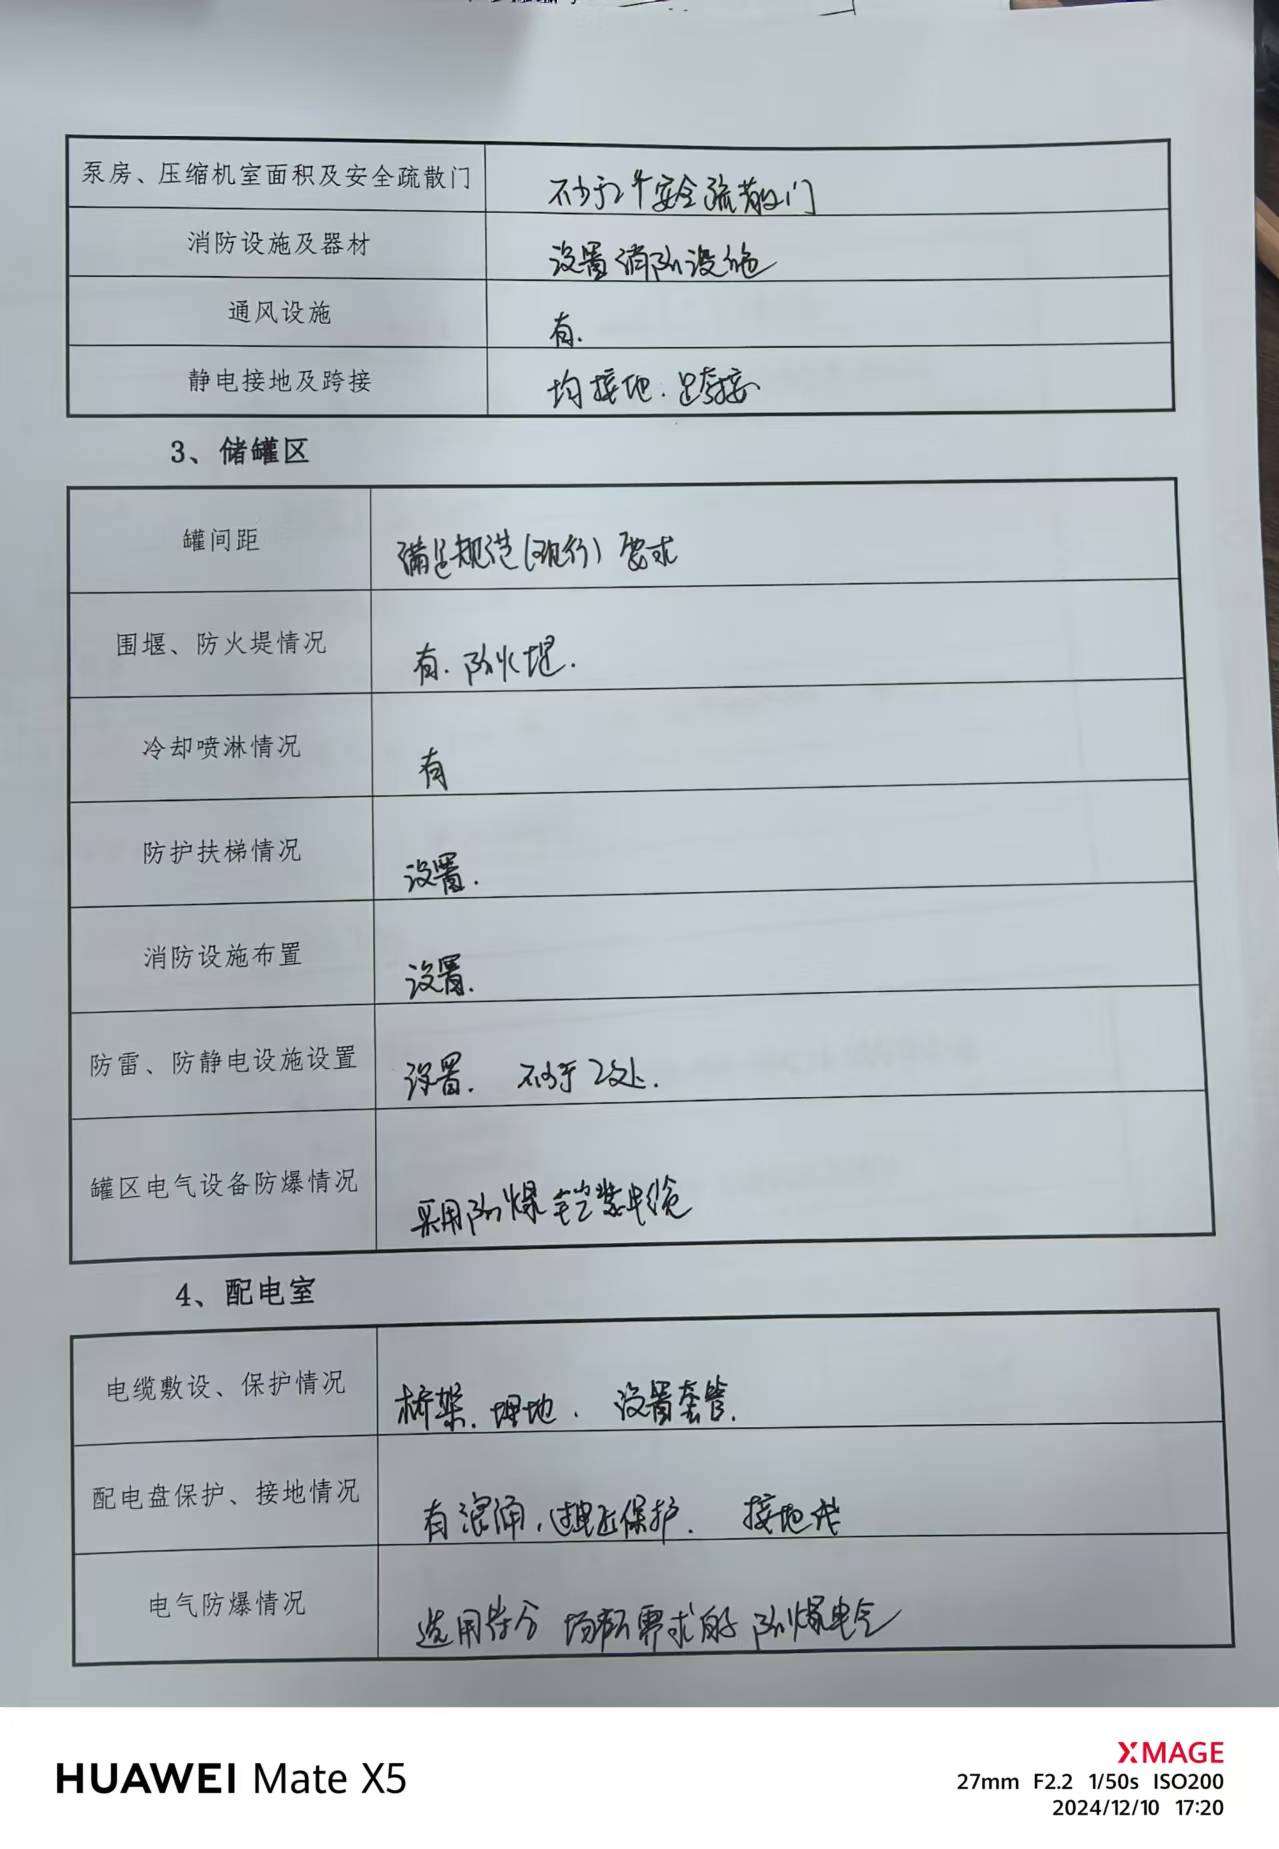 泵房、压缩机室面积及安全疏散门 不少于2个安全疏散门
消防设施及器材 设置消防设施
通风设施 有.
静电接地及跨接 均接地.跨接
3、储罐区
罐间距 满足规范(现行)要求
围堰、防火堤情况 有.防火堤.
冷却喷淋情况 有
防护扶梯情况 设置.
消防设施布置 设置.
防雷、防静电设施设置 设置. 不少于2处.
罐区电气设备防爆情况 采用防爆铠装电缆
4、配电室
电缆敷设、保护情况 桥架.埋地. 设置套管.
配电盘保护、接地情况 有浪涌,过电压保护. 接地线
电气防爆情况 选用符合场所需求的防爆电气
HUAWEI Mate X5
XMAGE
27mm F2.2 1/50s ISO200
2024/12/10 17:20